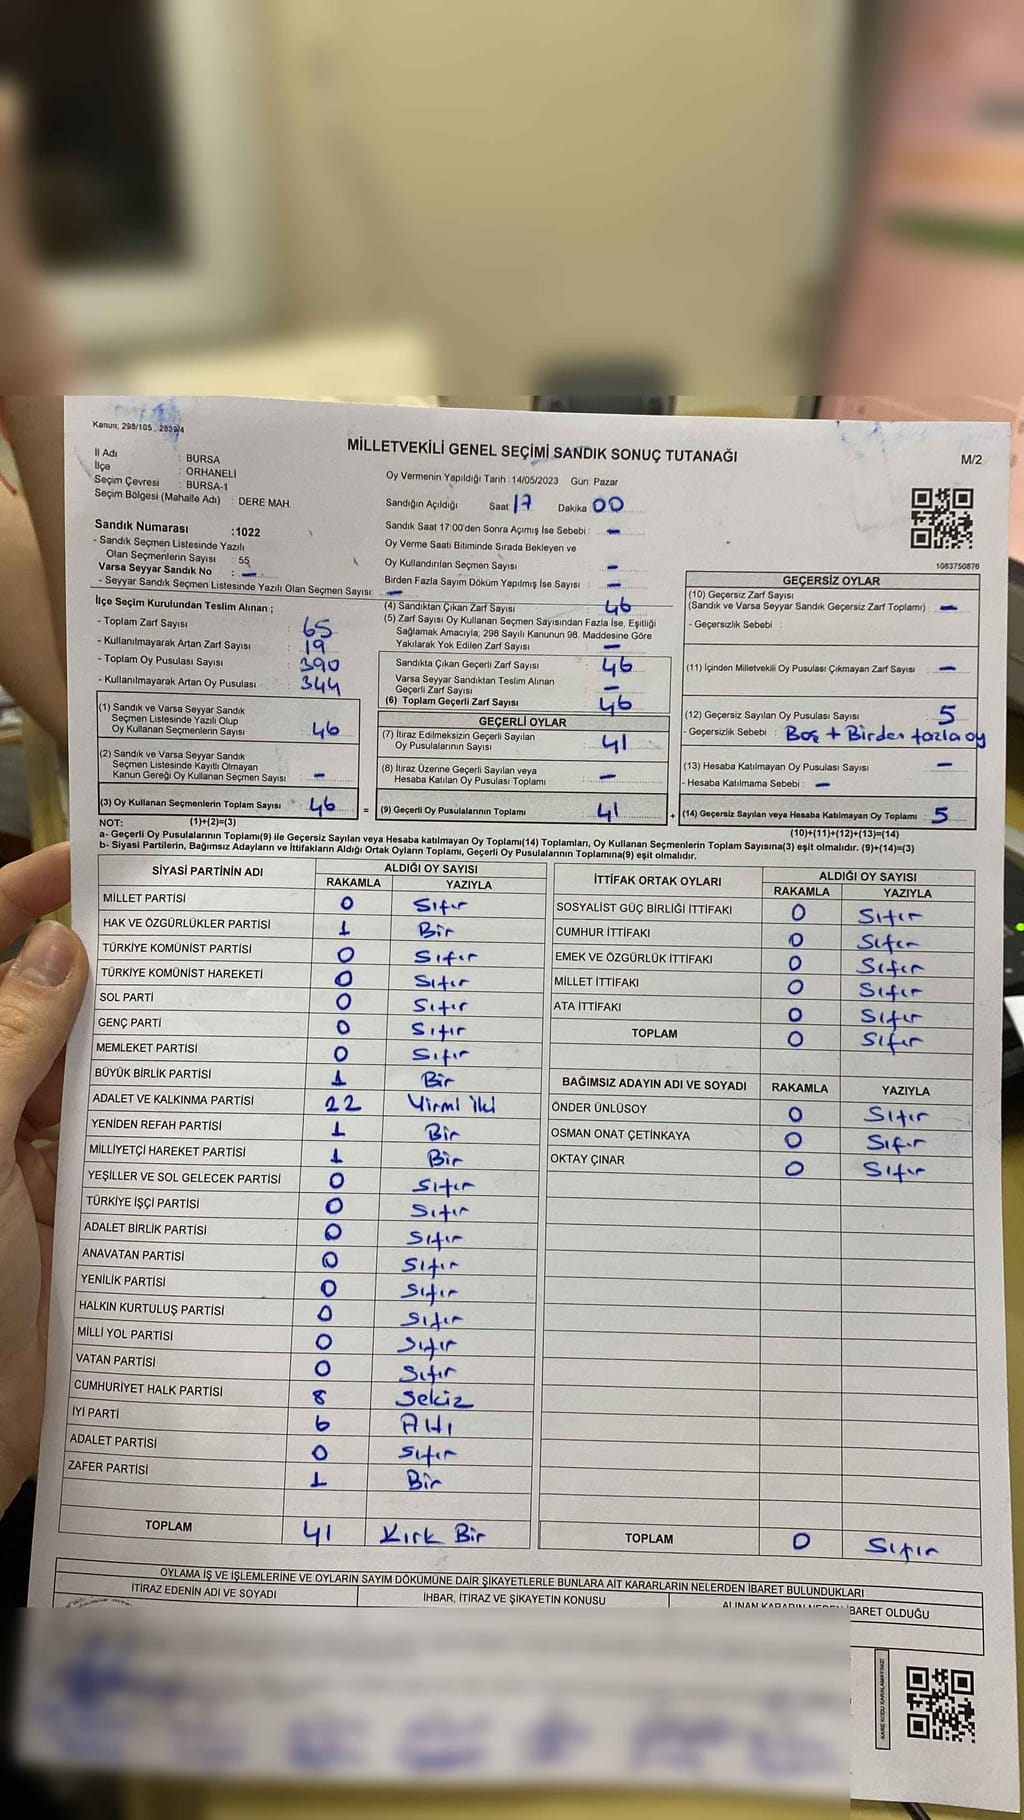 Kanun; 298/105 , 2839/4
MİLLETVEKİLİ GENEL SEÇİMİ SANDIK SONUÇ TUTANAĞI
M/2
İl Adı : BURSA
İlçe : ORHANELİ
Seçim Çevresi : BURSA-1
Seçim Bölgesi (Mahalle Adı) : DERE MAH.
Oy Vermenin Yapıldığı Tarih :14/05/2023 Gün: Pazar
Sandığın Açıldığı Saat: 17 Dakika 00
Sandık Numarası :1022
- Sandık Seçmen Listesinde Yazılı
Olan Seçmenlerin Sayısı : 55
Varsa Seyyar Sandık No : -
- Seyyar Sandık Seçmen Listesinde Yazılı Olan Seçmen Sayısı: -
Sandık Saat 17:00'den Sonra Açımış İse Sebebi : -
Oy Verme Saati Bitiminde Sırada Bekleyen ve
Oy Kullandırılan Seçmen Sayısı -
Birden Fazla Sayım Döküm Yapılmış İse Sayısı : -
1083750876
İlçe Seçim Kurulundan Teslim Alınan ;
- Toplam Zarf Sayısı : 65
- Kullanılmayarak Artan Zarf Sayısı : 19
- Toplam Oy Pusulası Sayısı : 390
- Kullanılmayarak Artan Oy Pusulası : 344
(1) Sandık ve Varsa Seyyar Sandık
Seçmen Listesinde Yazılı Olup
Oy Kullanan Seçmenlerin Sayısı : 46
(2) Sandık ve Varsa Seyyar Sandık
Seçmen Listesinde Kayıtlı Olmayan
Kanun Gereği Oy Kullanan Seçmen Sayısı : -
(3) Oy Kullanan Seçmenlerin Toplam Sayısı : 46
(4) Sandıktan Çıkan Zarf Sayısı : 46
(5) Zarf Sayısı Oy Kullanan Seçmen Sayısından Fazla İse, Eşitliği
Sağlamak Amacıyla; 298 Sayılı Kanunun 98. Maddesine Göre
Yakılarak Yok Edilen Zarf Sayısı : -
Sandıkta Çıkan Geçerli Zarf Sayısı : 46
Varsa Seyyar Sandıktan Teslim Alınan
Geçerli Zarf Sayısı : -
(6) Toplam Geçerli Zarf Sayısı : 46
GEÇERLİ OYLAR
(7) İtiraz Edilmeksizin Geçerli Sayılan
Oy Pusulalarının Sayısı : 41
(8) İtiraz Üzerine Geçerli Sayılan veya
Hesaba Katılan Oy Pusulası Toplamı : -
= (9) Geçerli Oy Pusulalarının Toplamı : 41
GEÇERSİZ OYLAR
(10) Geçersiz Zarf Sayısı
(Sandık ve Varsa Seyyar Sandık Geçersiz Zarf Toplamı) : -
- Geçersizlik Sebebi :
(11) İçinden Milletvekili Oy Pusulası Çıkmayan Zarf Sayısı : -
(12) Geçersiz Sayılan Oy Pusulası Sayısı : 5
- Geçersizlik Sebebi : Boş + Birden fazla oy
(13) Hesaba Katılmayan Oy Pusulası Sayısı : -
- Hesaba Katılmama Sebebi : -
+ (14) Geçersiz Sayılan veya Hesaba Katılmayan Oy Toplamı : 5
NOT: (1)+(2)=(3)
(10)+(11)+(12)+(13)=(14)
a- Geçerli Oy Pusulalarının Toplamı(9) ile Geçersiz Sayılan veya Hesaba katılmayan Oy Toplamı(14) Toplamları, Oy Kullanan Seçmenlerin Toplam Sayısına(3) eşit olmalıdır. (9)+(14)=(3)
b- Siyasi Partilerin, Bağımsız Adayların ve İttifakların Aldığı Ortak Oyların Toplamı, Geçerli Oy Pusulalarının Toplamına(9) eşit olmalıdır.
SİYASİ PARTİNİN ADI ALDIĞI OY SAYISI
RAKAMLA YAZIYLA
MİLLET PARTİSİ 0 Sıfır
HAK VE ÖZGÜRLÜKLER PARTİSİ 1 Bir
TÜRKİYE KOMÜNİST PARTİSİ 0 Sıfır
TÜRKİYE KOMÜNİST HAREKETİ 0 Sıfır
SOL PARTİ 0 Sıfır
GENÇ PARTİ 0 Sıfır
MEMLEKET PARTİSİ 0 Sıfır
BÜYÜK BİRLİK PARTİSİ 1 Bir
ADALET VE KALKINMA PARTİSİ 22 Yirmi iki
YENİDEN REFAH PARTİSİ 1 Bir
MİLLİYETÇİ HAREKET PARTİSİ 1 Bir
YEŞİLLER VE SOL GELECEK PARTİSİ 0 Sıfır
TÜRKİYE İŞÇİ PARTİSİ 0 Sıfır
ADALET BİRLİK PARTİSİ 0 Sıfır
ANAVATAN PARTİSİ 0 Sıfır
YENİLİK PARTİSİ 0 Sıfır
HALKIN KURTULUŞ PARTİSİ 0 Sıfır
MİLLİ YOL PARTİSİ 0 Sıfır
VATAN PARTİSİ 0 Sıfır
CUMHURİYET HALK PARTİSİ 8 Sekiz
İYİ PARTİ 6 Altı
ADALET PARTİSİ 0 Sıfır
ZAFER PARTİSİ 1 Bir
TOPLAM 41 Kırk Bir
İTTİFAK ORTAK OYLARI ALDIĞI OY SAYISI
RAKAMLA YAZIYLA
SOSYALİST GÜÇ BİRLİĞİ İTTİFAKI 0 Sıfır
CUMHUR İTTİFAKI 0 Sıfır
EMEK VE ÖZGÜRLÜK İTTİFAKI 0 Sıfır
MİLLET İTTİFAKI 0 Sıfır
ATA İTTİFAKI 0 Sıfır
TOPLAM 0 Sıfır
BAĞIMSIZ ADAYIN ADI VE SOYADI RAKAMLA YAZIYLA
ÖNDER ÜNLÜSOY 0 Sıfır
OSMAN ONAT ÇETİNKAYA 0 Sıfır
OKTAY ÇINAR 0 Sıfır
TOPLAM 0 Sıfır
OYLAMA İŞ VE İŞLEMLERİNE VE OYLARIN SAYIM DÖKÜMÜNE DAİR ŞİKAYETLERLE BUNLARA AİT KARARLARIN NELERDEN İBARET BULUNDUKLARI
İTİRAZ EDENİN ADI VE SOYADI İHBAR, İTİRAZ VE ŞİKAYETİN KONUSU ALINAN KARARIN NEDEN İBARET OLDUĞU
KARE KODU KARALAMAYINIZ!